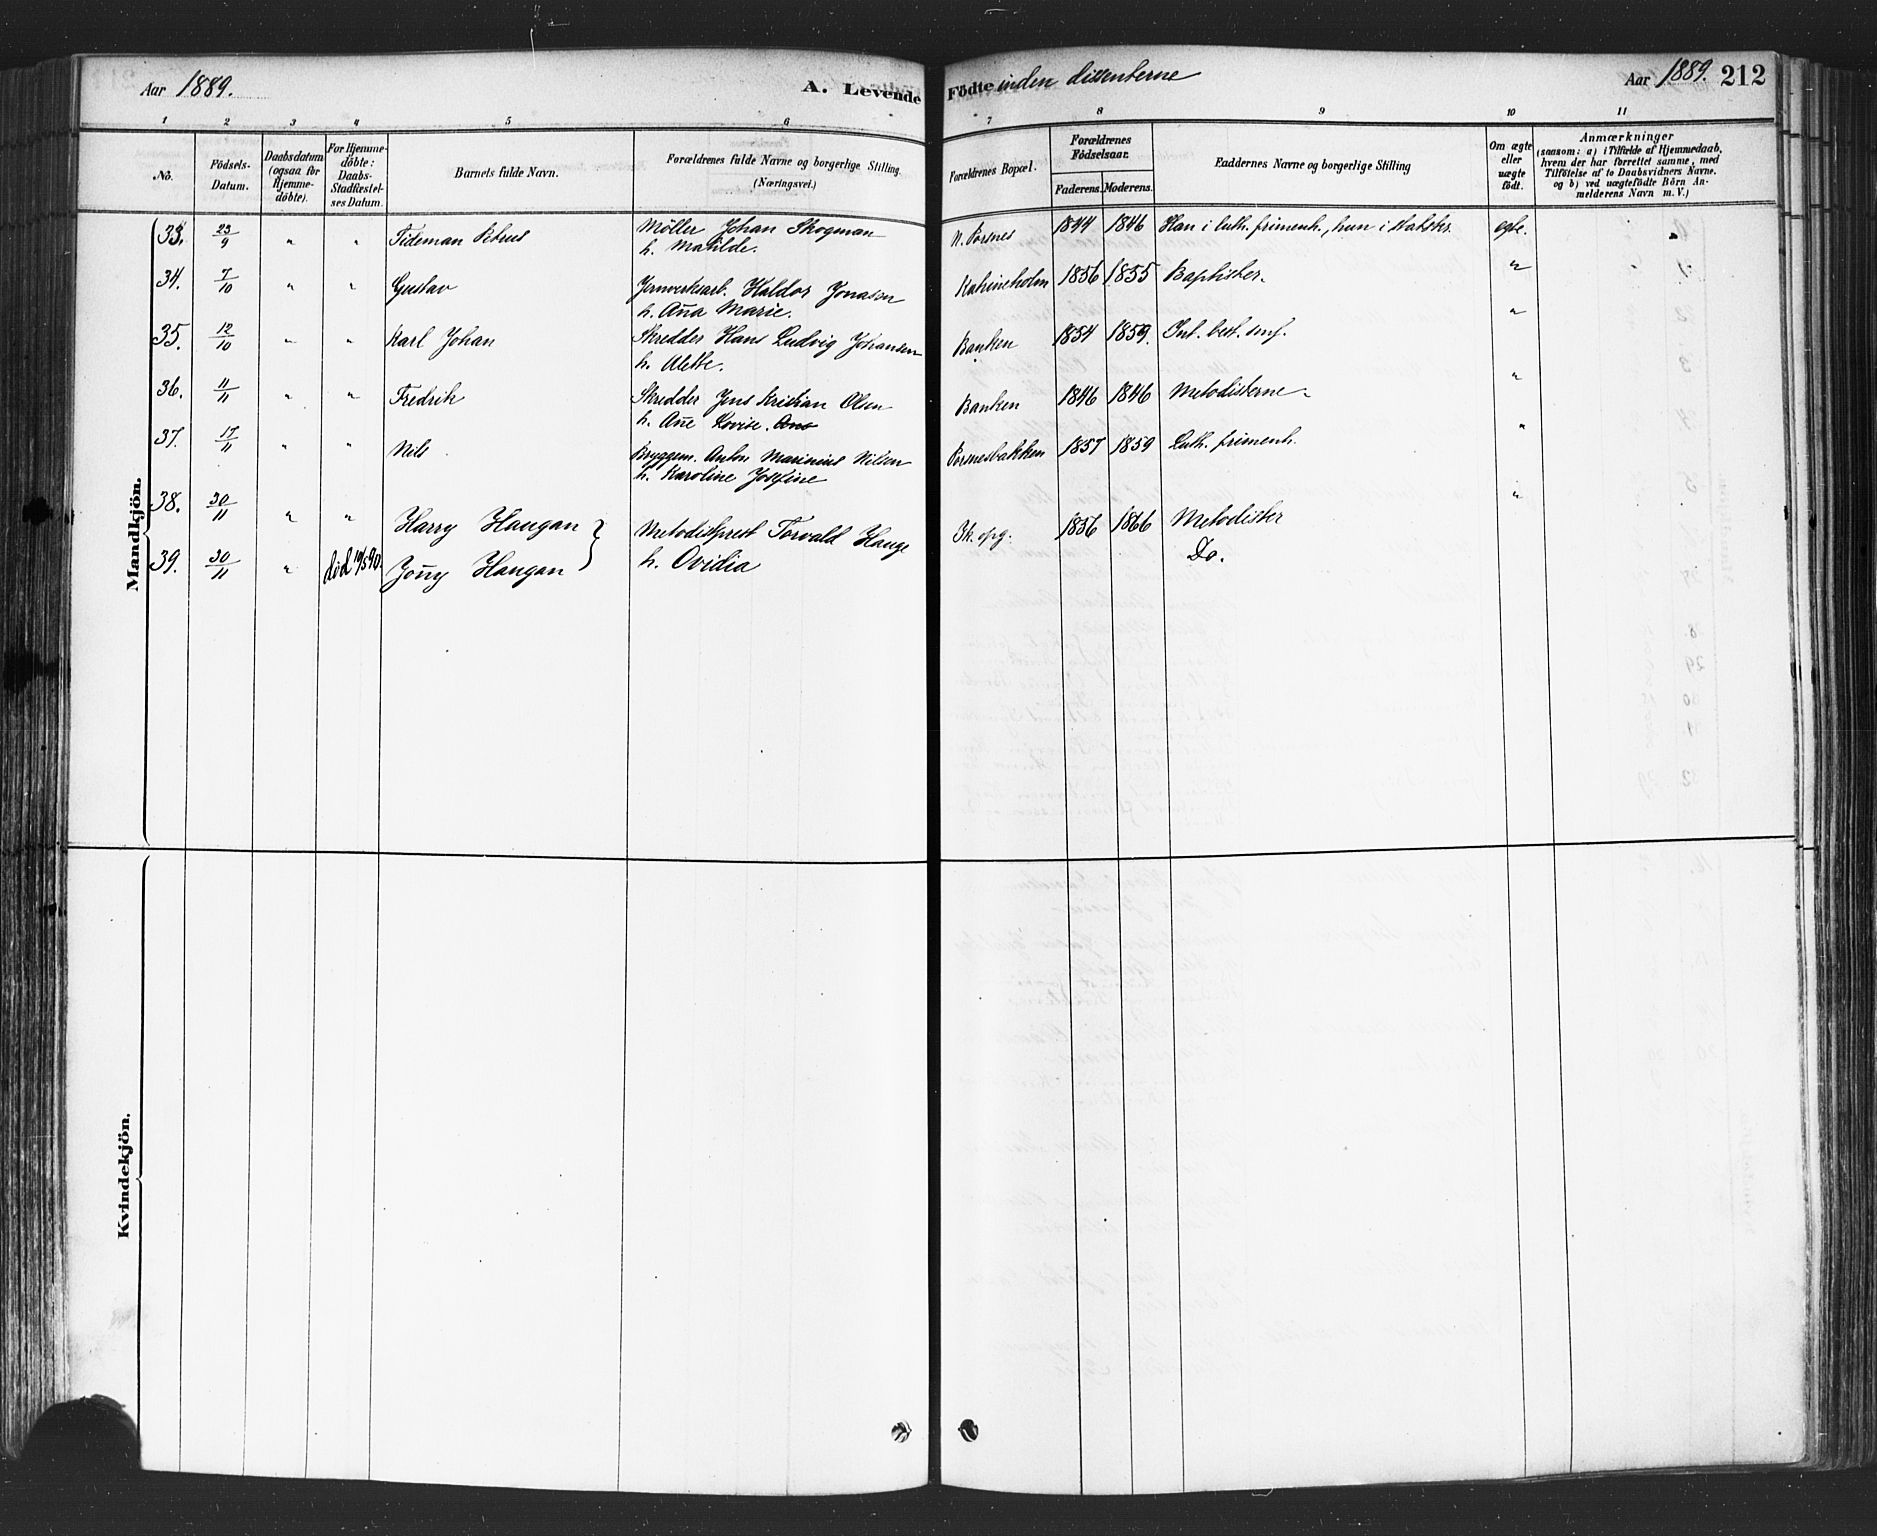 Aar 1889.
A. Levende Fødte inden dissenterne
Aar 1889. 212
1 2 3 4 5 6 7 8 9 10 11
No.
Födsels-Datum.
Daabsdatum (ogsaa for Hjemme-döbte).
For Hjemme-döbte: Daabs-Stadfæstel-ses Datum.
Barnets fulde Navn.
Forældrenes fulde Navne og borgerlige Stilling. (Næringsvei.)
Forældrenes Bopæl.
Forældrenes Födselsaar.
Faderens. Moderens.
Faddernes Navne og borgerlige Stilling
Om ægte eller uægte födt.
Anmærkninger
(saasom: a) i Tilfælde af Hjemmedaab, hvem der har forrettet samme, med Tilföielse af to Daabsvidners Navne. og b) ved uægtefödte Börn An-melderens Navn m. V.)
Mandkjön.
33. 23/9 " " Tideman Petrus Möller Johan Skogman N. Porsnes 1844 1846 Han i luth. frimenh., hun i statskr. egte.
h. Matilde.
34. 7/10 " " Gustav Jernverksarb. Haldor Jonasen Katrineholm 1856 1855 Baptister. "
h. Ana Marie.
35. 12/10 " " Karl Johan Skredder Hans Ludvig Johansen Banken 1854 1859. Int. best. smf. "
h. Alette.
36. 11/11 " " Fredrik Skredder Jens Kristian Olsen Banken 1846 1846 Metodisterne. "
h. Ane Lovise.
37. 17/11 " " Nils Byggem. Anton Marinius Nilsen Porsnesbakken 1857 1859 Luth. frimenh. "
h. Karoline Josefine
38. 30/11 " " Harry Haugan Metodistprest Torvald Hauge 1856 1866 Metodister "
39. 30/11 " död 10/5 90. Jony Haugan h. Ovidia Do.
Kvindekjön.